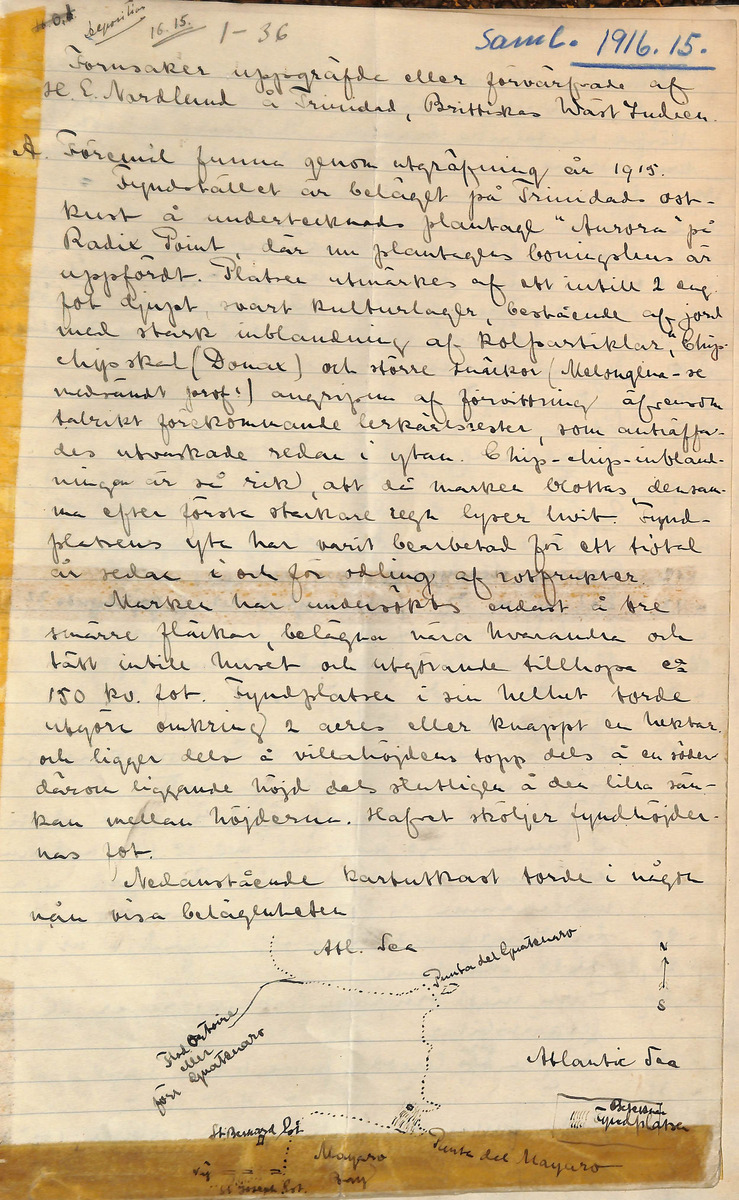 Deposition
16.15.
1-36
Saml. 1916.15.
Fornsaker uppgräfda eller förvärfvade af
H. E. Nordlund å Trinidad, Brittiska Wäst Indien.
A. Föremål funna genom utgräfning år 1915.
Fyndstället är beläget på Trinidads ost-
kust å undertecknads plantage "Aurora" på
Radix Point, där nu plantagens boningshus är
uppfördt. Platsen utmärkes af ett intill 2 eng.
fot djupt, svart kulturlager, bestående af jord
med stark inblandning af kolpartiklar, "Chip-
chipskal (Donax) och större snäckor (Melongena - se
nedsändt prof!) angripna af förvittring äfvensom
talrikt förekommande lerkärlsrester, som anträffa-
des utvaskade redan i ytan. Chip-chip-inbland-
ningen är så rik, att då marken blottas, densam-
ma efter första starkare regn lyser hvit. Fynd-
platsens yta har varit bearbetad för ett tiotal
år sedan i och för odling af rotfrukter.
Marken har undersökts endast å tre
smärre fläckar, belägna nära hvarandra och
tätt intill huset och utgörande tillhopa ca
150 kv. fot. Fyndplatsen i sin helhet torde
utgöra omkring 2 acres eller knappt en hektar
och ligger dels å villahöjdens topp dels å en söder
därom liggande höjd dels slutligen å den lilla sän-
kan mellan höjderna. Hafvet sköljer fyndhöjder-
nas fot.
Nedanstående kartutkast torde i någon
mån visa belägenheten
Atl. Sea
Punta del Guatenaro
N
S
Flod Ortoire
eller
förr Guatenaro
Atlantic Sea
Fyndplatsen
St Bernard Est.
Mayaro
Bay
Punta del Mayaro
St Joseph Est.